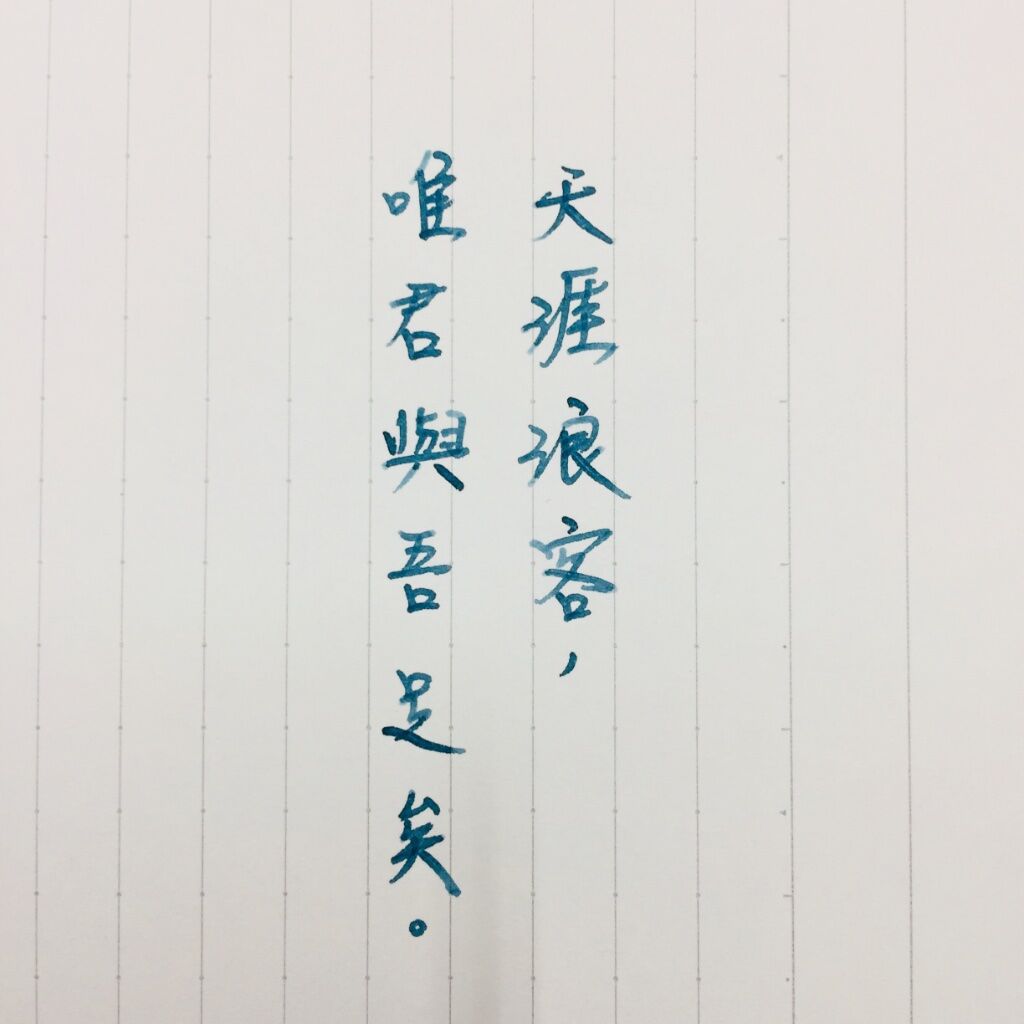 天涯浪客，
唯君與吾足矣。